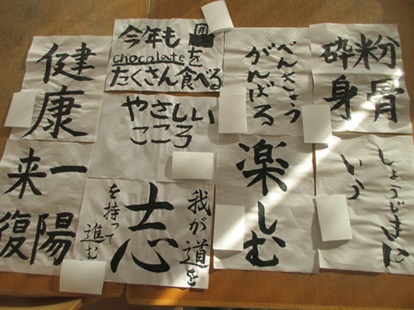 健康
今年も
chocolateを
たくさん食べる
べんきょう
がんばる
粉骨
砕身
一陽
来復
やさしい
こころ
我が道を
志
を持って
進む
楽しむ
しょうじきに
いう